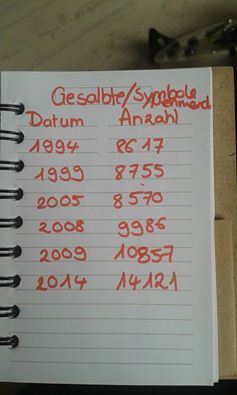 Gesalbte/Symbole
Datum Anzahl
1994 8617
1999 8755
2005 8570
2008 9986
2009 10857
2014 14121